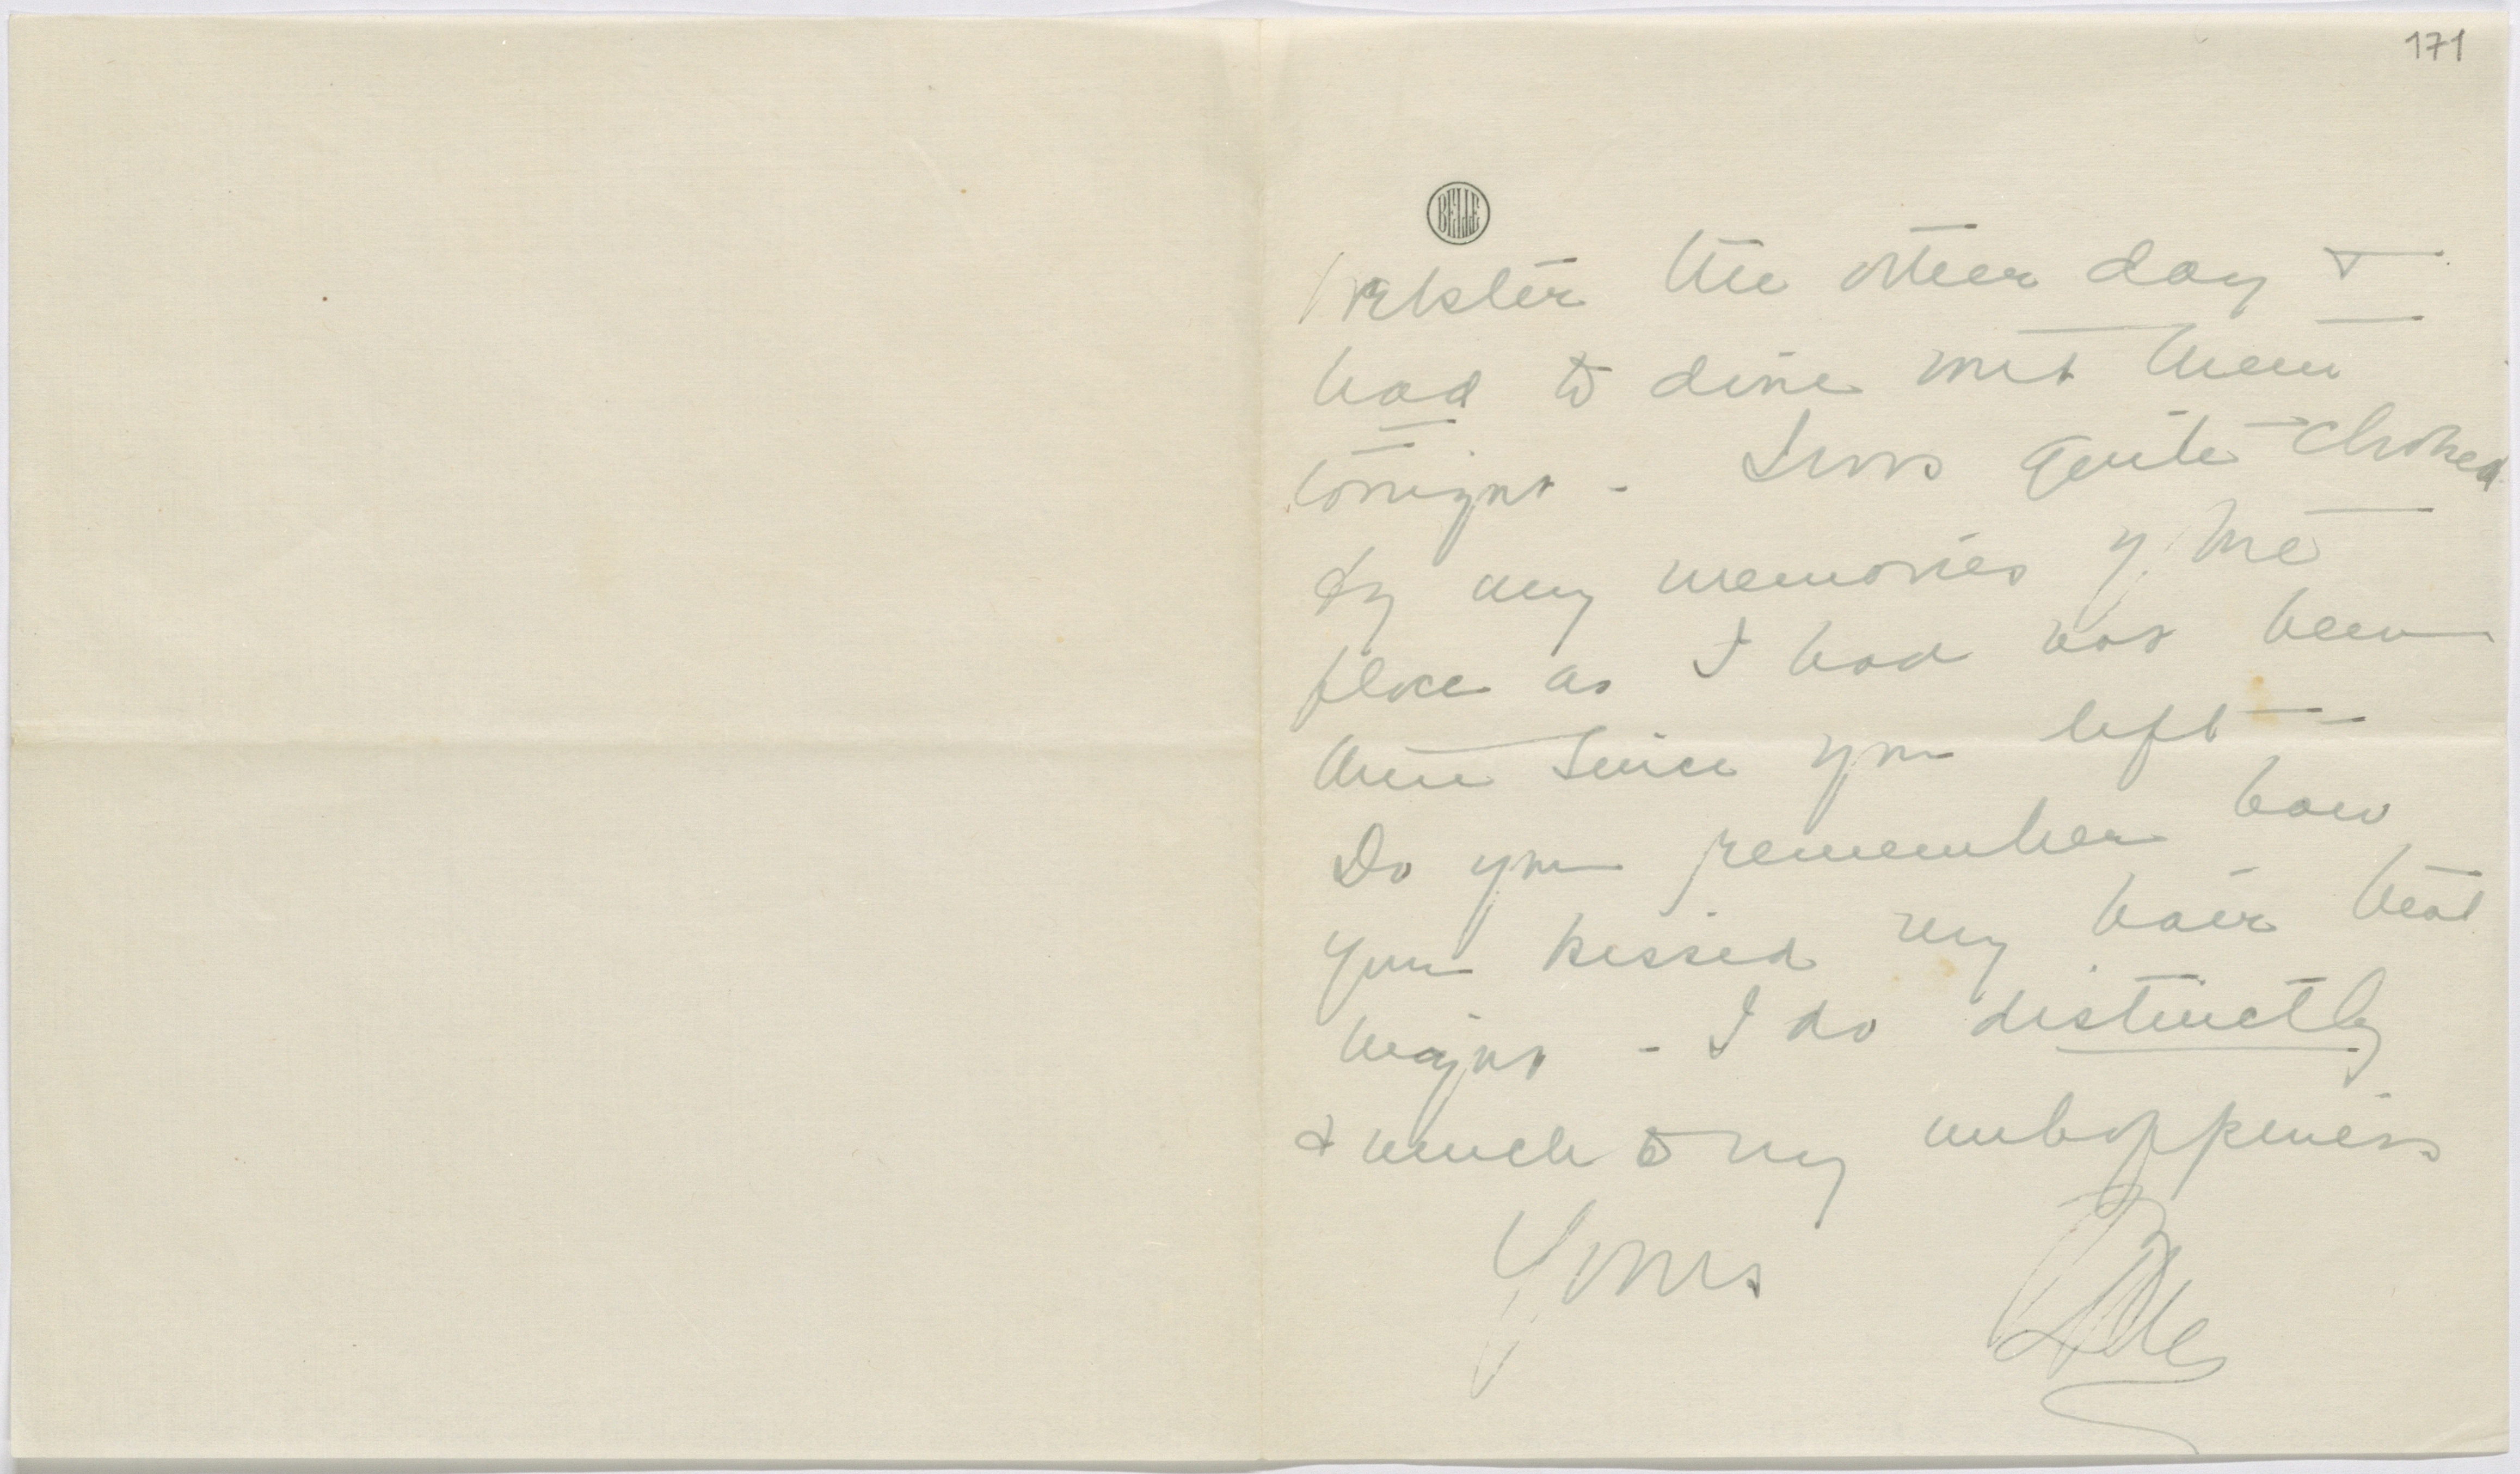 171
BELLE
Webster the other day &
had to dine with them
tonight - I was quite choked
by my memories of the
place as I had not been
there since you left -
Do you remember how
you kissed my hair that
night - I do distinctly
& much to my unhappiness
Yours Belle